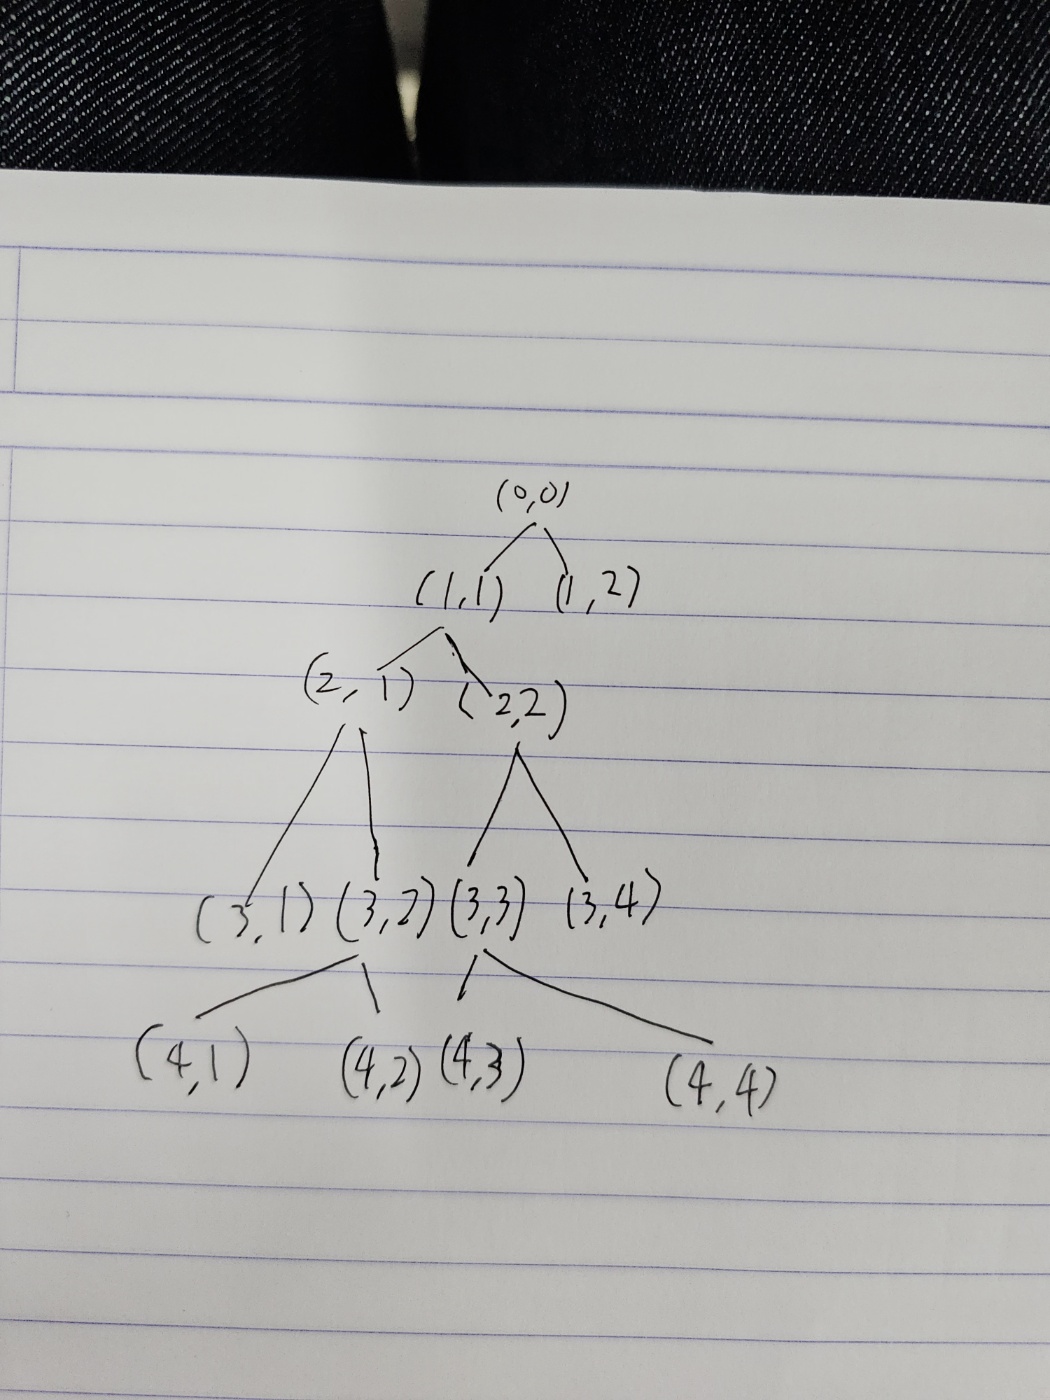 (0,0)
(1,1) (1,2)
(2,1) (2,2)
(3,1) (3,2) (3,3) (3,4)
(4,1) (4,2) (4,3) (4,4)